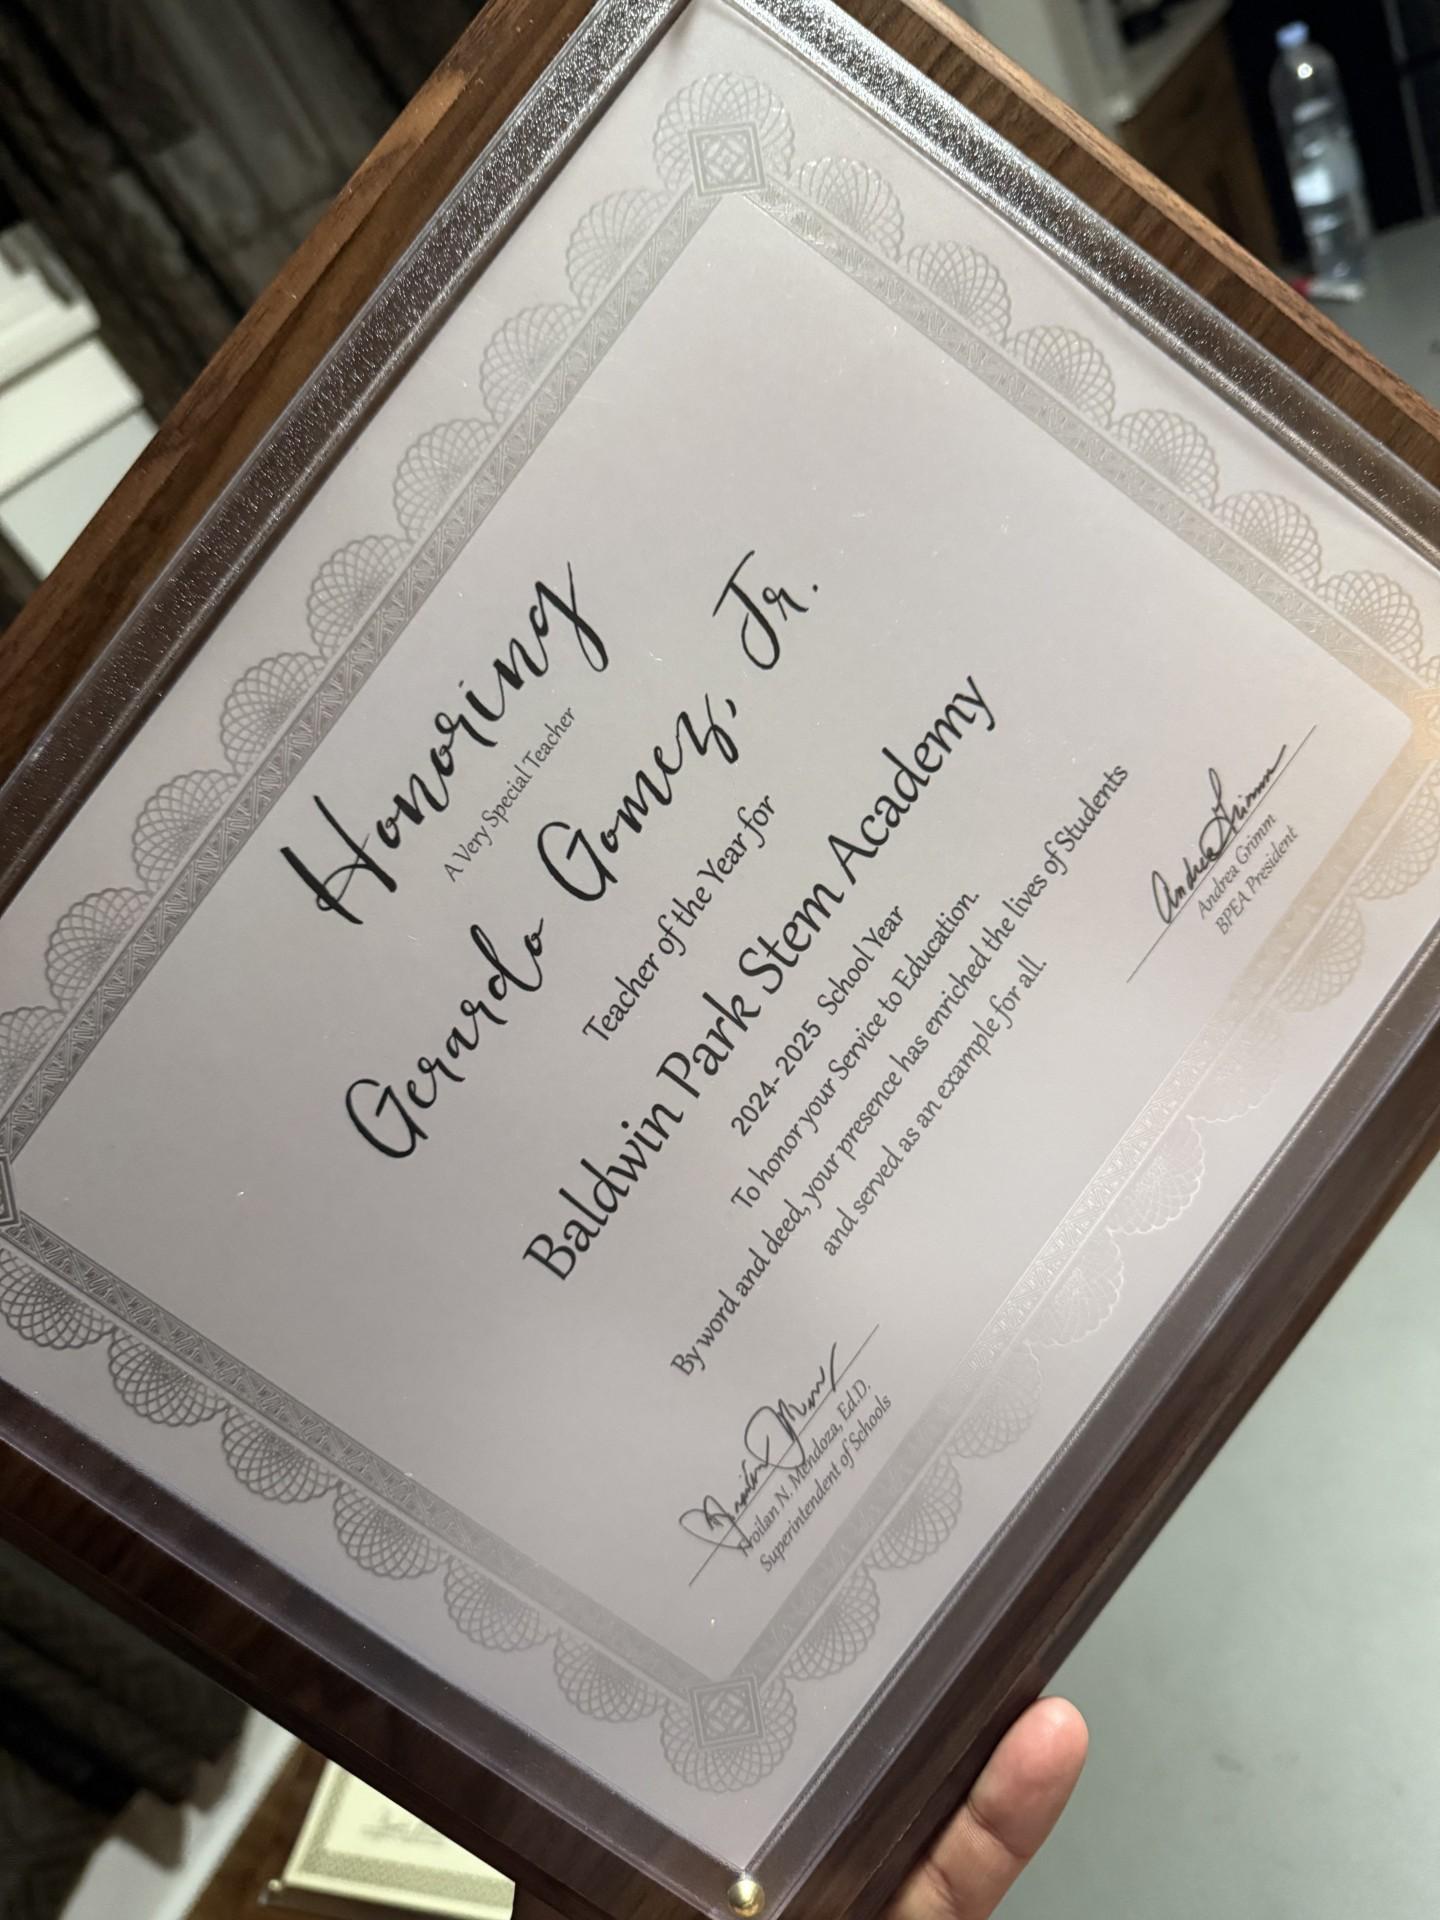 Honoring
A Very Special Teacher
Gerardo Gomez, Jr.
Teacher of the Year for
Baldwin Park Stem Academy
2024-2025 School Year
To honor your Service to Education.
By word and deed, your presence has enriched the lives of Students
and served as an example for all.
Froilan N. Mendoza, Ed.D.
Superintendent of Schools
Andrea Grimm
Andrea Grimm
BPEA President